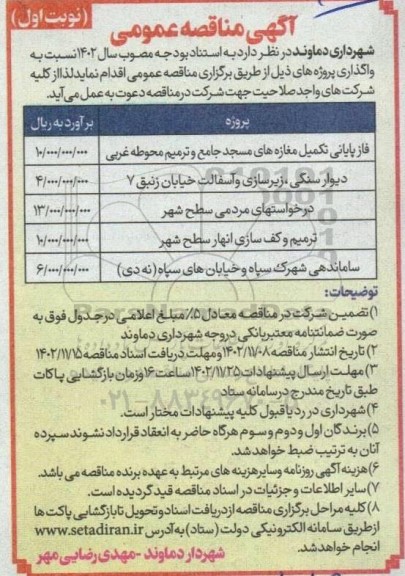 (نوبت اول)
آگهی مناقصه عمومی
شهرداری دماوند در نظر دارد به استناد بودجه مصوب سال ۱۴۰۲ نسبت به
واگذاری پروژه های ذیل از طریق برگزاری مناقصه عمومی اقدام نماید لذا از کلیه
شرکت های واجد صلاحیت جهت شرکت در مناقصه دعوت به عمل می آید.
پروژه برآورد به ریال
فاز پایانی تکمیل مغازه های مسجد جامع و ترمیم محوطه غربی ۱۰/۰۰۰/۰۰۰/۰۰۰
دیوار سنگی ، زیرسازی و آسفالت خیابان زنبق ۷ ۴/۰۰۰/۰۰۰/۰۰۰
درخواستهای مردمی سطح شهر ۱۳/۰۰۰/۰۰۰/۰۰۰
ترمیم و کف سازی انهار سطح شهر ۱۰/۰۰۰/۰۰۰/۰۰۰
ساماندهی شهرک سپاه و خیابان های سپاه (نه دی) ۶/۰۰۰/۰۰۰/۰۰۰
توضیحات:
۱) تضمین شرکت در مناقصه معادل ۵٪ مبلغ اعلامی در جدول فوق به
صورت ضمانتنامه معتبر بانکی در وجه شهرداری دماوند
۲) تاریخ انتشار مناقصه ۱۴۰۲/۱۱/۰۸ و مهلت دریافت اسناد مناقصه ۱۴۰۲/۱۱/۱۵
۳) مهلت ارسال پیشنهادات ۱۴۰۲/۱۱/۲۵ ساعت ۱۶ و زمان بازگشایی پاکات
طبق تاریخ مندرج در سامانه ستاد
۴) شهرداری در رد یا قبول کلیه پیشنهادات مختار است.
۵) برندگان اول و دوم و سوم هرگاه حاضر به انعقاد قرارداد نشوند سپرده
آنان به ترتیب ضبط خواهد شد.
۶) هزینه آگهی روزنامه و سایر هزینه های مرتبط به عهده برنده مناقصه می باشد.
۷) سایر اطلاعات و جزئیات در اسناد مناقصه قید گردیده است.
۸) کلیه مراحل برگزاری مناقصه از دریافت اسناد و تحویل تا بازگشایی پاکت ها
از طریق سامانه الکترونیکی دولت (ستاد) به آدرس www.setadiran.ir
انجام خواهد شد.
شهردار دماوند - مهدی رضایی مهر
۰۲۱-۸۸۳۴۹۶۷۰